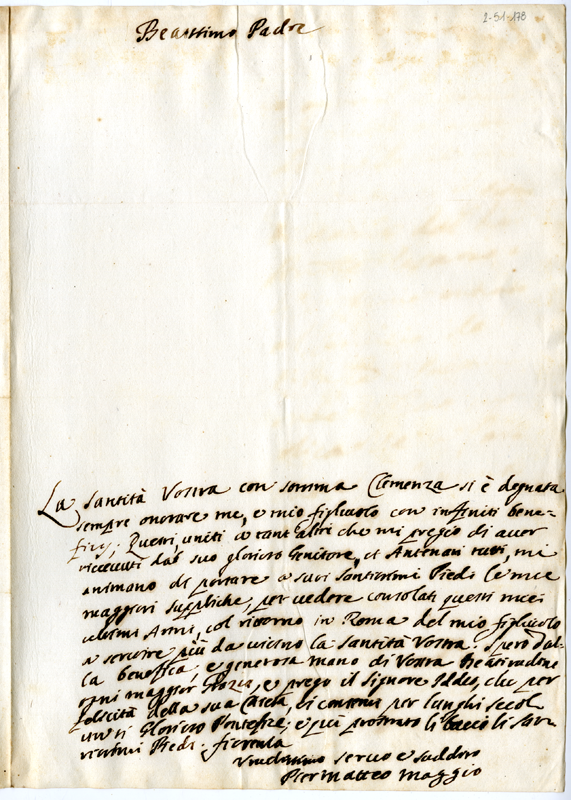 2-51-178
Beatissimo Padre
La Santità Vostra con somma Clemenza si è degnata
sempre onorare me, e mio figliuolo con infiniti bene-
ficij; Questi uniti a tant'altri che mi pregio di aver
riceuuti dal suo glorioso Genitore, et Antenati tutti, mi
animano di portare a suoi Santissimi Piedi le mie
maggiori suppliche, per uedere consolati questi miei
ultimi Anni, col ritorno in Roma del mio figliuolo
a seruire più da uicino la Santità Vostra. Spero dal-
la benefica, e generosa mano di Vostra Beatitudine
ogni maggior Grazia, e prego il Signore Iddio, che per
felicità della sua Chiesa, ci conserui per lunghi secoli
un sì Glorioso Pontefice; e qui prostrato li bacio li San-
tissimi Piedi.
seruo e suddito
Pier Matteo Maggio